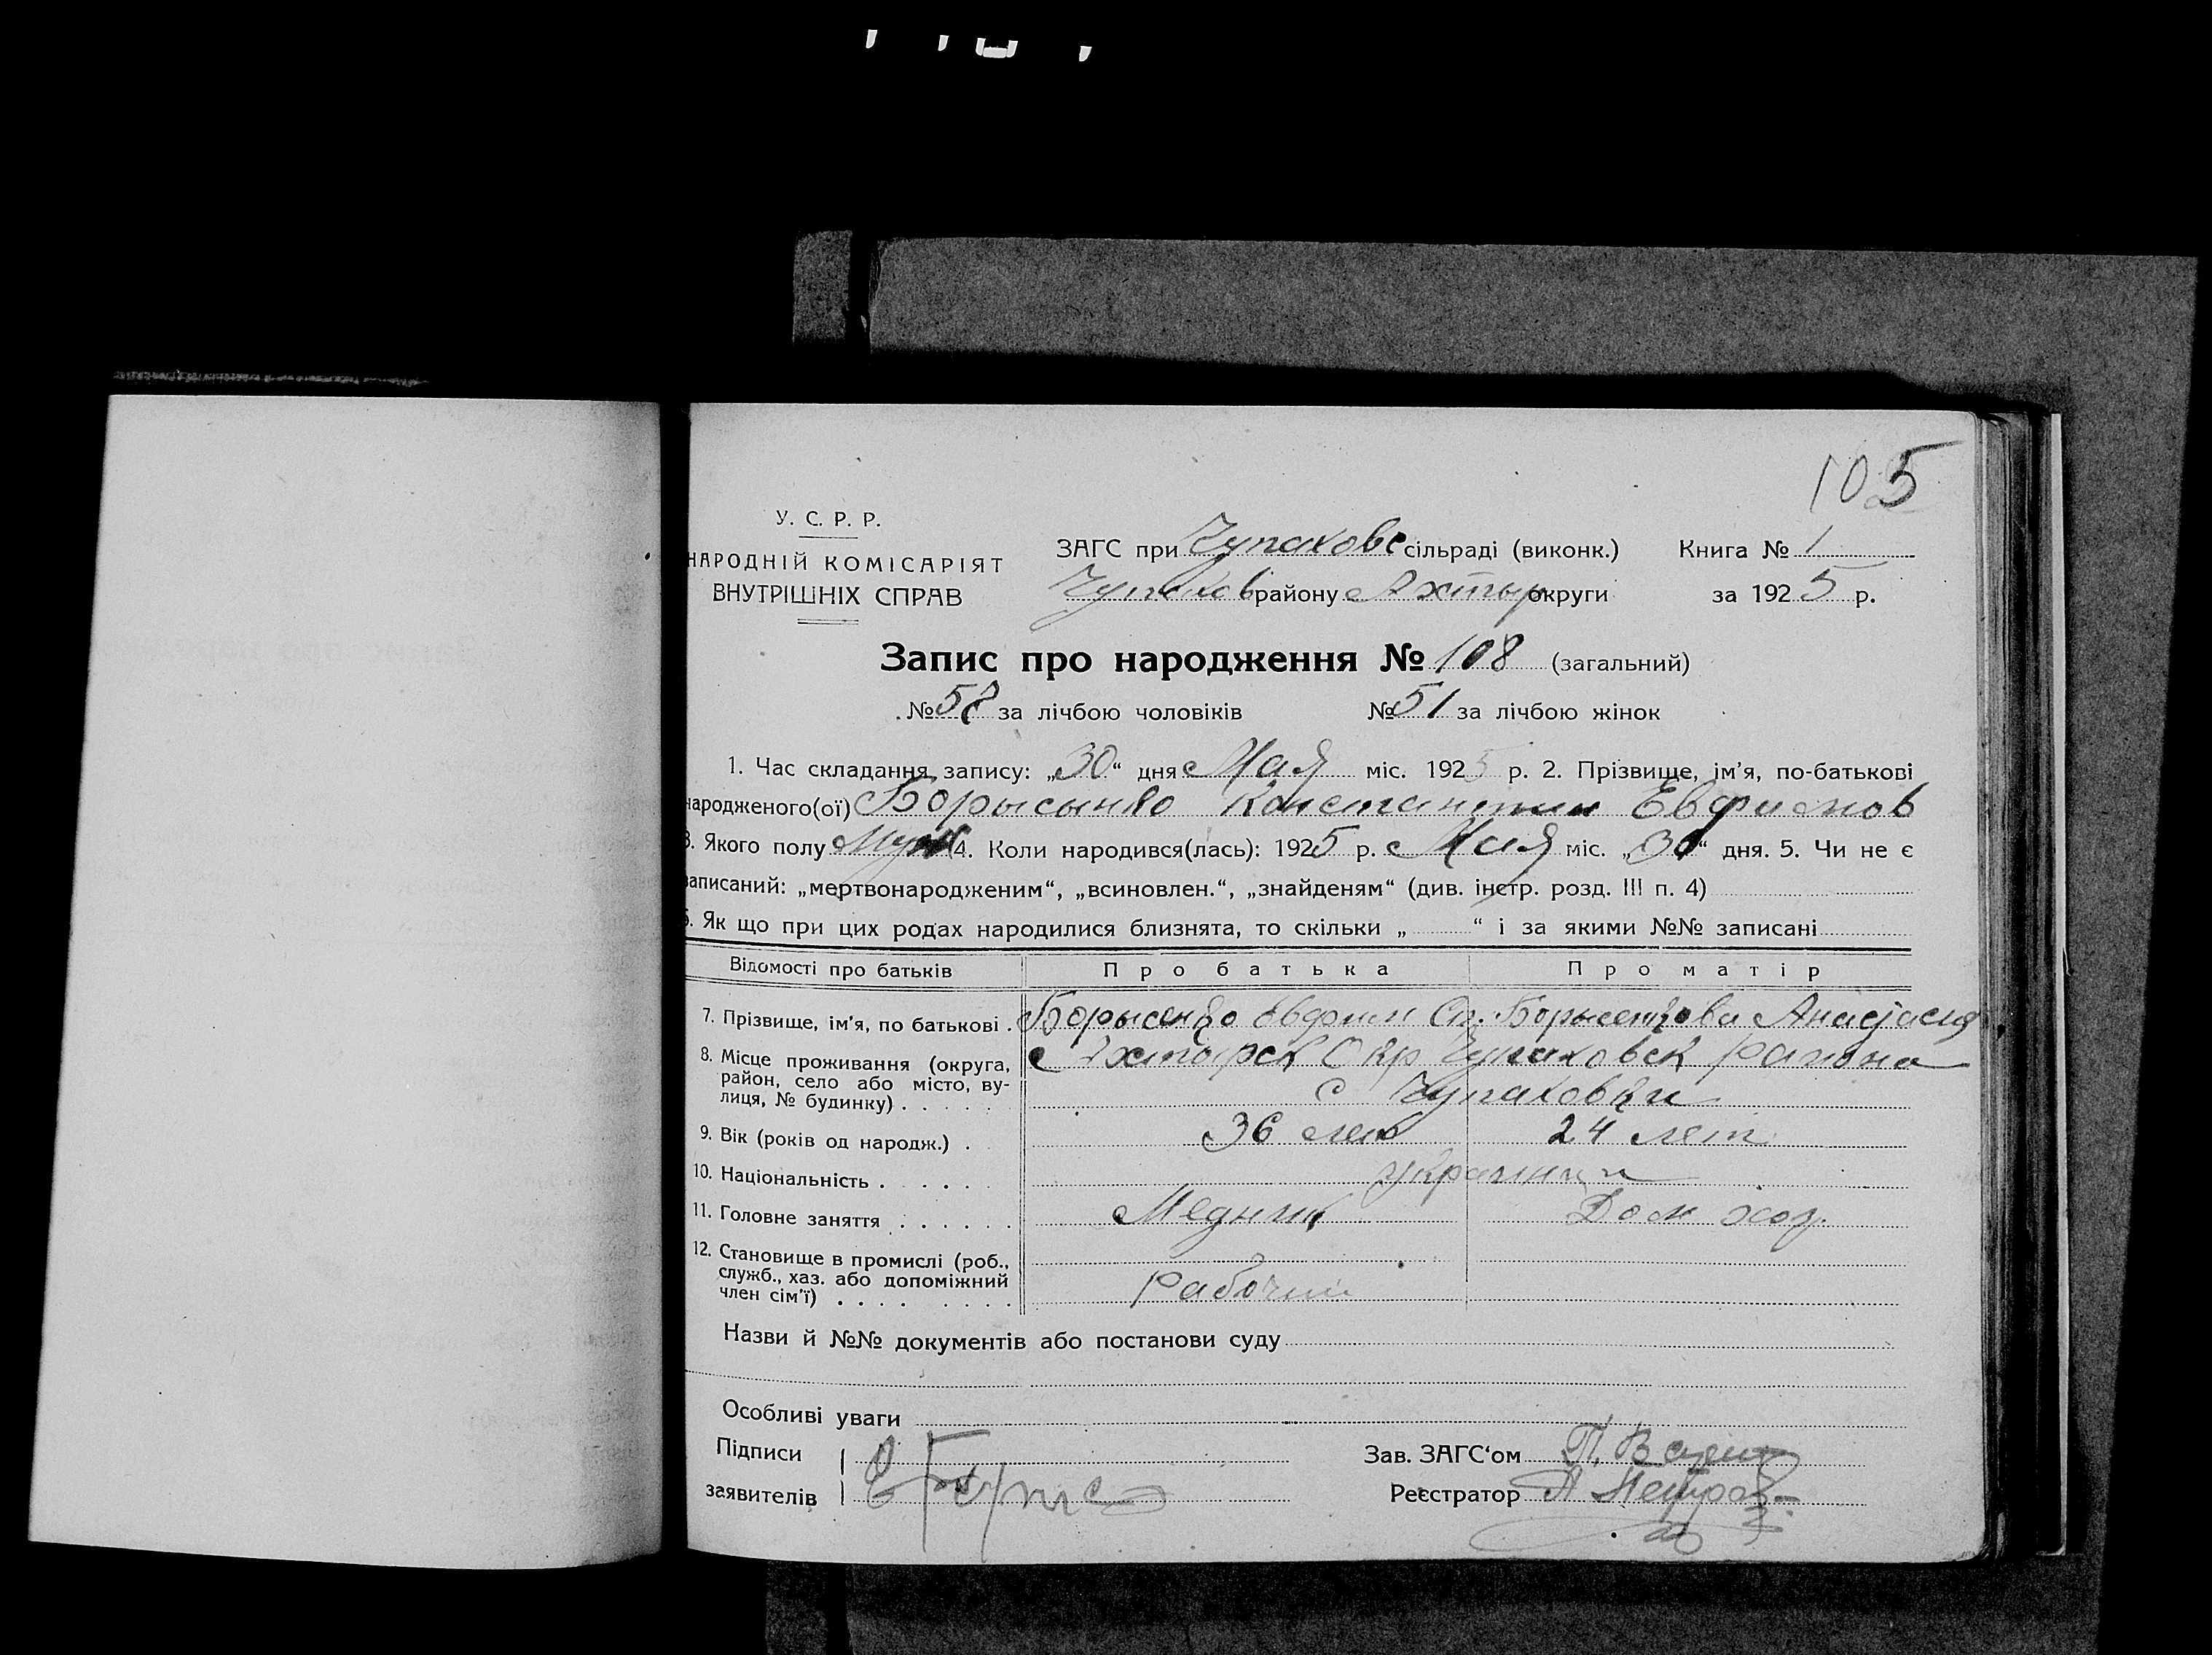 105
У. С. Р. Р.
НАРОДНІЙ КОМІСАРІЯТ
ВНУТРІШНІХ СПРАВ
ЗАГС при Чупаховс сільраді (виконк.) Книга № 1
Чупахов району Ахтыр округи за 1925 р.
Запис про народження № 108 (загальний)
№ 57 за лічбою чоловіків № 51 за лічбою жінок
1. Час складання запису: „30“ дня Мая міс. 1925 р. 2. Прізвище, ім'я, по-батькові
народженого(ої) Борысенко Константин Евфимов
3. Якого полу Муж 4. Коли народився(лась): 1925 р. Мая міс. „30“ дня. 5. Чи не є
записаний: „мертвонародженим“, „всиновлен.“, „знайденям“ (див. інстр. розд. III п. 4)
6. Як що при цих родах народилися близнята, то скільки „ “ і за якими №№ записані
Відомості про батьків Про батька Про матір
7. Прізвище, ім'я, по батькові . Борысенко Евфим Ст. Борысенкова Анастасия
8. Місце проживання (округа, район, село або місто, вулиця, № будинку) . . . . . Ахтырск Окр. Чупаховск района
с Чупаховки
9. Вік (років од народж.) . 36 лет 24 лет
10. Національність . . . . . . украинцы
11. Головне заняття . . . . . . Медник Дом хоз.
12. Становище в промислі (роб., служб., хаз. або допоміжний член сім'ї) . . . . . . . . Рабочий
Назви й №№ документів або постанови суду
Особливі уваги
Підписи
заявителів
Зав. ЗАГС'ом П.
Реєстратор